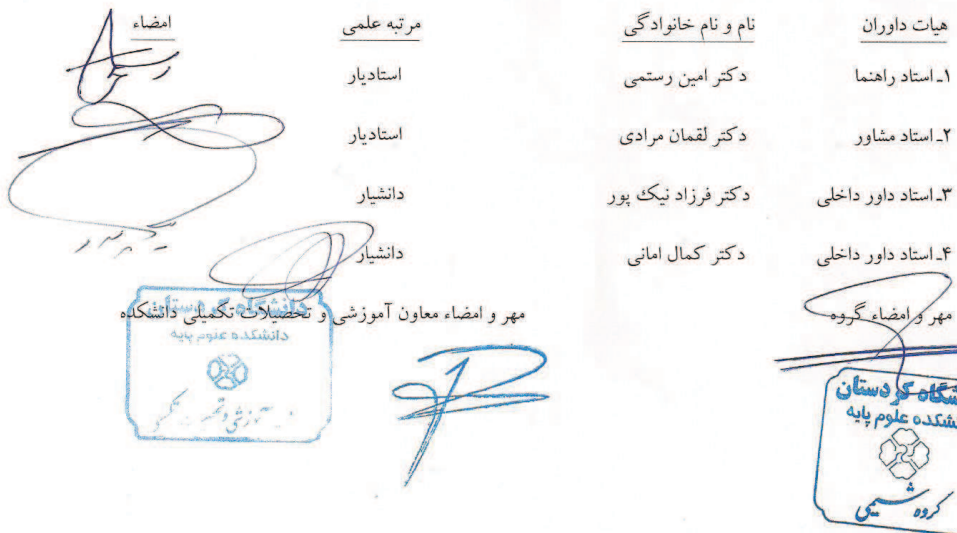 هیات داوران نام و نام خانوادگی مرتبه علمی امضاء
۱ـ استاد راهنما دکتر امین رستمی استادیار
۲ـ استاد مشاور دکتر لقمان مرادی استادیار
۳ـ استاد داور داخلی دکتر فرزاد نیک پور دانشیار
۴ـ استاد داور داخلی دکتر کمال امانی دانشیار
مهر و امضاء گروه مهر و امضاء معاون آموزشی و تحصیلات تکمیلی دانشکده
دانشگاه کردستان
دانشکده علوم پایه
شگاه کردستان
شکده علوم پایه
گروه شیمی